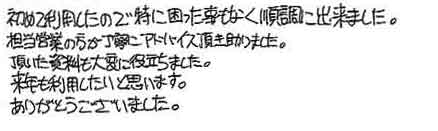 初めて利用したので特に困った事もなく順調に出来ました。
担当営業の方が丁寧にアドバイス頂き助かりました。
頂いた資料も大変に役立ちました。
来年も利用したいと思います。
ありがとうございました。